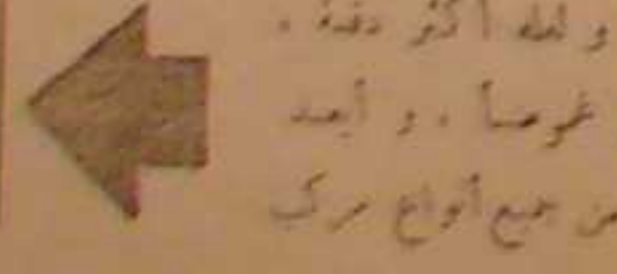 و لعله أكثر دقة ،
غموضاً ، و أبعد
من جميع أنواع مركب